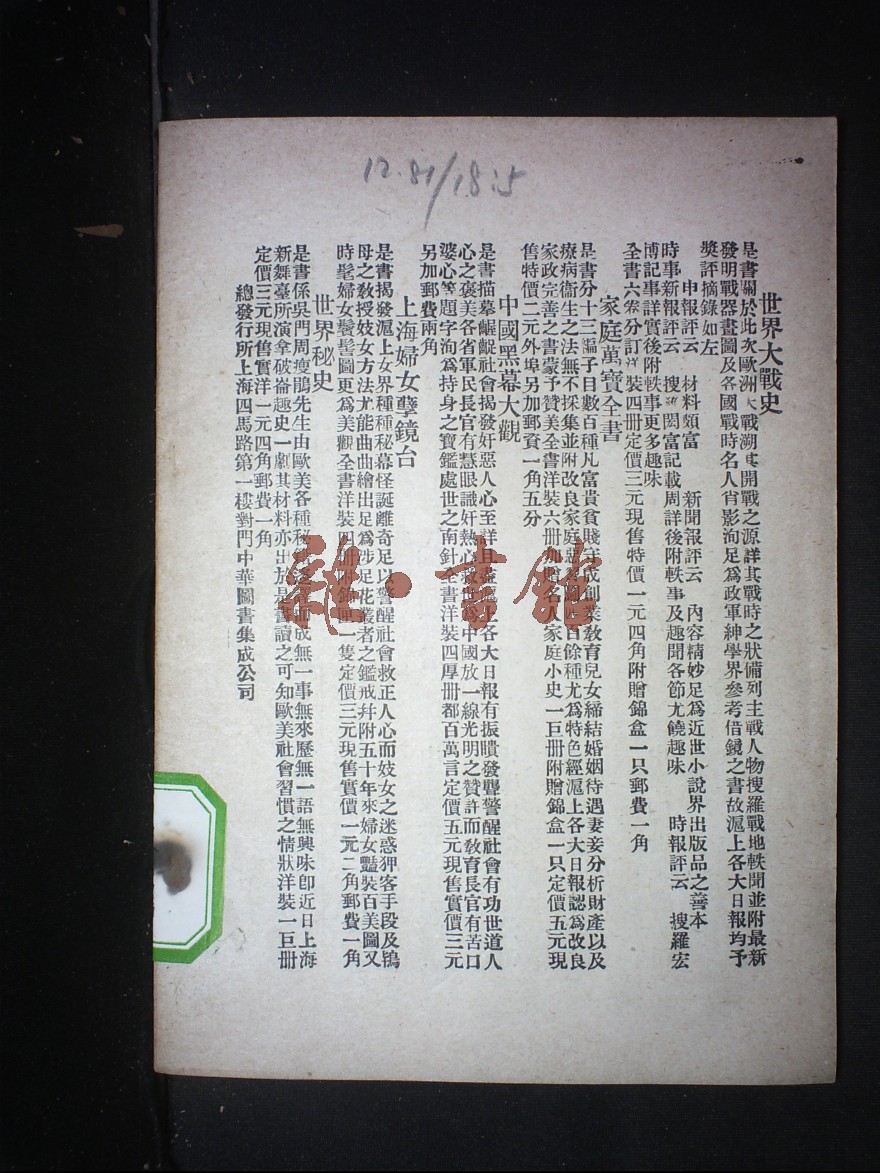 12.81/18:5
世界大戰史
是書關於此次歐洲大戰溯其開戰之源詳其戰時之狀備列主戰人物搜羅戰地軼聞並附最新
發明戰器畫圖及各國戰時名人肖影洵足爲政軍紳學界參考借鏡之書故滬上各大日報均予
獎評摘錄如左
申報評云　材料頗富　　新聞報評云　內容精妙足爲近世小說界出版品之善本
時事新報評云　搜羅閎富記載周詳後附軼事及趣聞各節尤饒趣味　　時報評云　搜羅宏
博記事詳實後附軼事更多趣味
全書六卷分訂洋裝四册定價三元現售特價一元四角附贈錦盒一只郵費一角
家庭萬寶全書
是書分十三編子目數百種凡富貴貧賤守成創業敎育兒女締結婚姻待遇妻妾分析財產以及
療病衞生之法無不採集並附改良家庭 百餘種尤爲特色經滬上各大日報認爲改良
家政完善之書蒙予贊美全書洋裝六册加贈名人家庭小史一巨册附贈錦盒一只定價五元現
售特價二元外埠另加郵資一角五分
中國黑幕大觀
是書描摹齷齪社會揭發奸惡人心至詳且盡 上各大日報有振聵發聾警醒社會有功世道人
心之褒美各省軍民長官有慧眼識奸熱心救世爲中國放一線光明之贊許而敎育長官有苦口
婆心等題字洵爲持身之寶鑑處世之南針全書洋裝四厚册都百萬言定價五元現售實價三元
另加郵費兩角
上海婦女孽鏡台
是書揭發滬上女界種種秘幕怪誕離奇足以警醒社會救正人心而妓女之迷惑狎客手段及鴇
母之敎授妓女方法尤能曲曲繪出足爲涉足花叢者之鑑戒幷附五十年來婦女豔裝百美圖又
時髦婦女鬢髻圖更爲美觀全書洋裝四册附錦匣一隻定價三元現售實價一元二角郵費一角
世界秘史
是書係吳門周瘦鵑先生由歐美各種秘 而成無一事無來歷無一語無興味卽近日上海
新舞臺所演拿破崙趣史一劇其材料亦出於是書讀之可知歐美社會習慣之情狀洋裝一巨册
定價三元現售實洋一元四角郵費一角
總發行所上海四馬路第一樓對門中華圖書集成公司